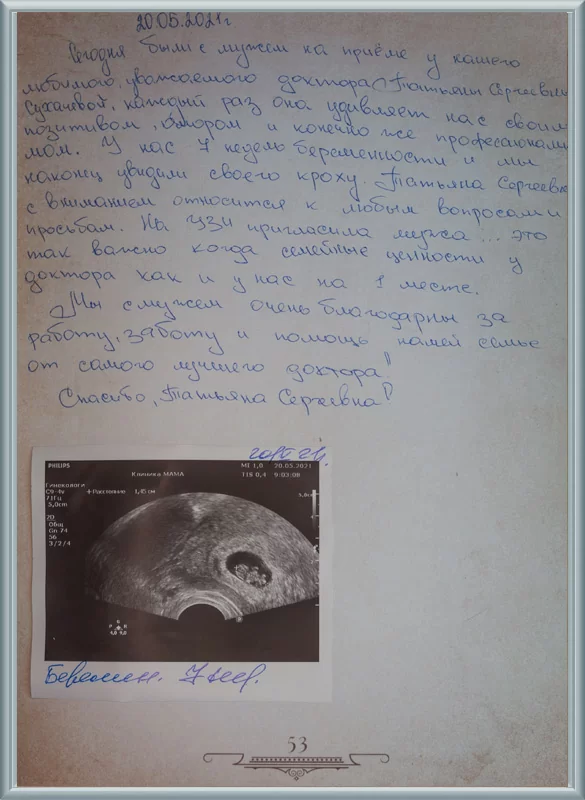 20.05.2021г
Сегодня были с мужем на приёме у нашего
любимого, уважаемого доктора Татьяны Сергеевны
Сухачевой, каждый раз она удивляет нас своим
позитивом, юмором и конечно же профессионализ
мом. У нас 7 недель беременности и мы
наконец увидели своего кроху. Татьяна Сергеевна
с вниманием относится к любым вопросам и
просьбам. На УЗИ пригласила мужа... это
так важно когда семейные ценности у
доктора как и у нас на 1 месте.
Мы с мужем очень благодарны за
работу, заботу и помощь нашей семье
от самого лучшего доктора!
Спасибо, Татьяна Сергеевна!
PHILIPS
Клиника МАМА
MI 1,0 20.05.2021
TIS 0,4 9:03:08
Гинекологи
C9-4v
71Гц
5,0cm
+Расстояние 1,15 см
2D
Общ
Gn 74
56
3/2/4
5,0см
P R
4,0 9,0
Беремен. 7 нед.
53